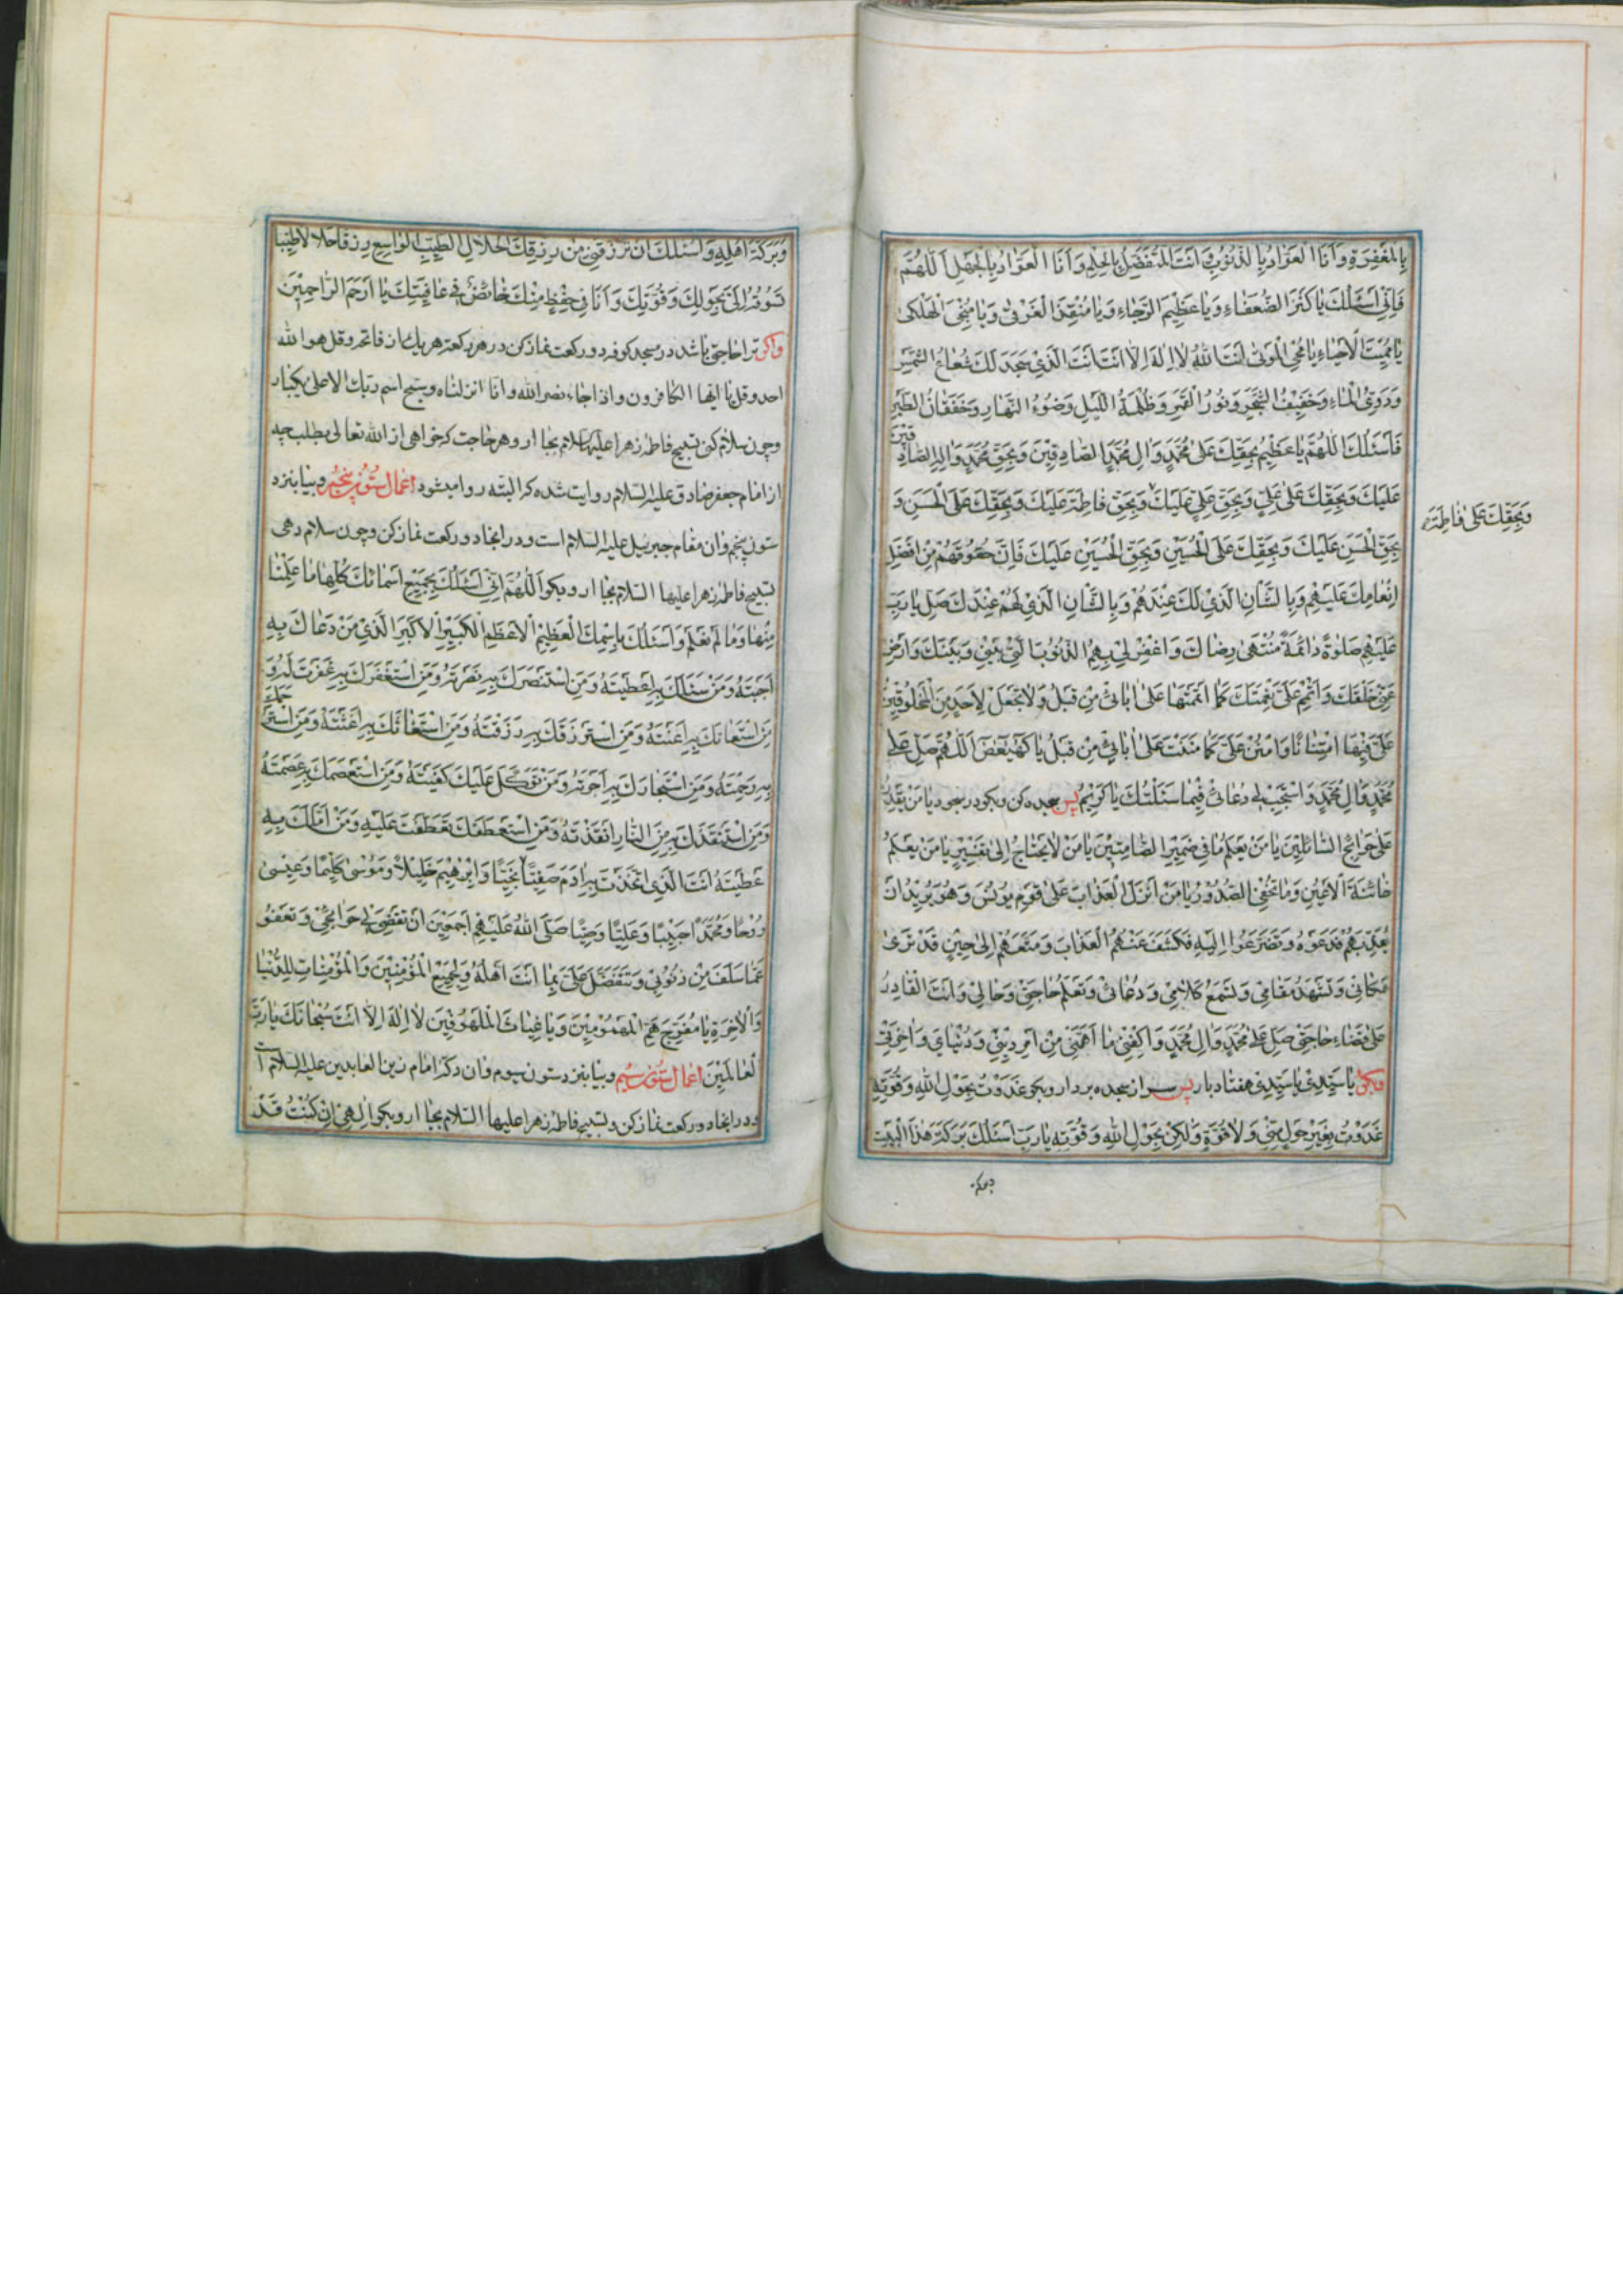 بِالْمَغْفِرَةِ وَاَنَا الْعَوّٰادُ بِالذُّنُوبِ وَاَنْتَ الْمُتَفَضِّلُ بِالْحِلْمِ وَاَنَا الْعَوّٰادُ بِالْجَهْلِ اَللّٰهُمَّ
فَاِنّي اَسْئَلُكَ يٰا كَنْزَ الضُّعَفٰاءِ وَيٰا عَظِيْمَ الرَّجٰاءِ وَيٰا مُنْقِذَ الْغَرْقىٰ وَيٰا مُنْجِىَ الْهَلْكىٰ
يٰا مُمِيْتَ الْاَحْيٰاءِ يٰا مُحْيِىَ الْمَوْتىٰ اَنْتَ اللّٰهُ لٰا اِلٰهَ اِلّٰا اَنْتَ اَنْتَ الَّذي سَجَدَ لَكَ شُعٰاعُ الشَّمْسِ
وَدَوِىُّ الْمٰاءِ وَحَفِيْفُ الشَّجَرِ وَنُورُ الْقَمَرِ وَظُلْمَةُ اللَّيْلِ وَضَوْءُ النَّهٰارِ وَخَفَقٰانُ الطَّيْرِ
فَاَسْئَلُكَ اللّٰهُمَّ يٰا عَظِيْمُ بِحَقِّكَ عَلىٰ مُحَمَّدٍ وَاٰلِ مُحَمَّدٍ الصّٰادِقِيْنَ وَبِحَقِّ مُحَمَّدٍ وَاٰلِهِ الصّٰادِقِيْنَ
عَلَيْكَ وَبِحَقِّكَ عَلىٰ عَلِيٍّ وَبِحَقِّ عَلِيٍّ عَلَيْكَ وَبِحَقِّ فٰاطِمَةَ عَلَيْكَ وَبِحَقِّكَ عَلَى الْحَسَنِ وَ
وَبِحَقِّكَ عَلىٰ فٰاطِمَةَ
بِحَقِّ الْحَسَنِ عَلَيْكَ وَبِحَقِّكَ عَلَى الْحُسَيْنِ وَبِحَقِّ الْحُسَيْنِ عَلَيْكَ فَاِنَّ حُقُوقَهُمْ مِنْ اَفْضَلِ
اِنْعٰامِكَ عَلَيْهِمْ وَبِالشَّاْنِ الَّذي لَكَ عِنْدَهُمْ وَبِالشَّاْنِ الَّذي لَهُمْ عِنْدَكَ صَلِّ يٰا رَبِّ
عَلَيْهِمْ صَلٰوةً دٰائِمَةً مُنْتَهىٰ رِضٰاكَ وَاغْفِرْ لي بِهِمُ الذُّنُوبَ الَّتي بَيْني وَبَيْنَكَ وَاَرْضِ
عَنّي خَلْقَكَ وَاَتْمِمْ عَلَيَّ نِعْمَتَكَ كَمٰا اَتْمَمْتَهٰا عَلىٰ اٰبٰائي مِنْ قَبْلُ وَلٰا تَجْعَلْ لِاَحَدٍ مِنَ الْمَخْلُوقِيْنَ
عَلَيَّ فِيْهَا امْتِنٰانًا وَامْنُنْ عَلَيَّ كَمٰا مَنَنْتَ عَلىٰ اٰبٰائي مِنْ قَبْلُ يٰا كٓهٰيٰعٓصٓ اَللّٰهُمَّ صَلِّ عَلىٰ
مُحَمَّدٍ وَاٰلِ مُحَمَّدٍ وَاسْتَجِبْ لي دُعٰائي فِيْمٰا سَئَلْتُكَ يٰا كَرِيْمُ پس سجده كن وبكو در سجود يٰا مَنْ يَقْدِرُ
عَلىٰ حَوٰائِجِ السّٰائِلِيْنَ يٰا مَنْ يَعْلَمُ مٰا في ضَمِيْرِ الصّٰامِتِيْنَ يٰا مَنْ لٰا يَحْتٰاجُ اِلىٰ تَفْسِيْرٍ يٰا مَنْ يَعْلَمُ
خٰائِنَةَ الْاَعْيُنِ وَمٰا تُخْفِي الصُّدُوْرُ يٰا مَنْ اَنْزَلَ الْعَذٰابَ عَلىٰ قَوْمِ يُوْنُسَ وَهُوَ يُرِيْدُ اَنْ
يُعَذِّبَهُمْ فَدَعَوْهُ وَتَضَرَّعُوا اِلَيْهِ فَكَشَفَ عَنْهُمُ الْعَذٰابَ وَمَتَّعَهُمْ اِلىٰ حِيْنٍ قَدْ تَرىٰ
مَكٰاني وَتَشْهَدُ مَقٰامي وَتَسْمَعُ كَلٰامي وَدُعٰائي وَتَعْلَمُ حٰاجَتي وَحٰالي وَاَنْتَ الْقٰادِرُ
عَلىٰ قَضٰاءِ حٰاجَتي صَلِّ عَلىٰ مُحَمَّدٍ وَاٰلِ مُحَمَّدٍ وَاكْفِني مٰا اَهَمَّني مِنْ اَمْرِ دِيْني وَدُنْيٰايَ وَاٰخِرَتي
وبكو يٰا سَيِّدي يٰا سَيِّدي هفتاد بار پس سر از سجده بردار وبكو غَدَوْتُ بِحَوْلِ اللّٰهِ وَقُوَّتِهِ
غَدَوْتُ بِغَيْرِ حَوْلٍ مِنّي وَلٰا قُوَّةٍ وَلٰكِنْ بِحَوْلِ اللّٰهِ وَقُوَّتِهِ يٰا رَبِّ اَسْئَلُكَ بَرَكَةَ هٰذَا الْبَيْتِ
وبركة
وَبَرَكَةَ اَهْلِهِ وَاَسْئَلُكَ اَنْ تَرْزُقَني مِنْ رِزْقِكَ الْحَلٰالِ الطَّيِّبِ الْوٰاسِعِ رِزْقًا حَلٰالًا طَيِّبًا
تَسُوْقُهُ اِلَيَّ بِحَوْلِكَ وَقُوَّتِكَ وَاَنَا في حِفْظٍ مِنْكَ خٰائِضٌ في عٰافِيَتِكَ يٰا اَرْحَمَ الرّٰاحِمِيْنَ
واكر ترا حاجتى باشد در مسجد كوفه دو ركعت نماز كن در هر ركعة هر يك از فاتحه وقل هو الله
احد وقل يا ايها الكافرون واذا جاء نصر الله وانا انزلناه وسبح اسم ربك الاعلى يكبار
وچون سلام كوى تسبيح فاطمه زهرا عليها السلام بجا ار وهر حاجت كه خواهى از الله تعالى بطلب چه
از امام جعفر صادق عليه السلام روايت شده كه البته روا ميشود اعمال ستون پنجم وبيا بنزد
ستون پنجم وان مقام جبرئيل عليه السلام است ودر انجا دو ركعت نماز كن وچون سلام دهى
تسبيح فاطمه زهرا عليها السلام بجا ار وبكو اَللّٰهُمَّ اِنّي اَسْئَلُكَ بِجَمِيْعِ اَسْمٰائِكَ كُلِّهٰا مٰا عَلِمْنٰا
مِنْهٰا وَمٰا لَمْ نَعْلَمْ وَاَسْئَلُكَ بِاِسْمِكَ الْعَظِيْمِ الْاَعْظَمِ الْكَبِيْرِ الْاَكْبَرِ الَّذي مَنْ دَعٰاكَ بِهِ
اَجَبْتَهُ وَمَنْ سَئَلَكَ بِهِ اَعْطَيْتَهُ وَمَنِ اسْتَنْصَرَكَ بِهِ نَصَرْتَهُ وَمَنِ اسْتَغْفَرَكَ بِهِ غَفَرْتَ لَهُ وَ
مَنِ اسْتَعٰانَكَ بِهِ اَعَنْتَهُ وَمَنِ اسْتَرْزَقَكَ بِهِ رَزَقْتَهُ وَمَنِ اسْتَغٰاثَكَ بِهِ اَغَثْتَهُ وَمَنِ اسْتَرْحَمَكَ
بِهِ رَحِمْتَهُ وَمَنِ اسْتَجٰارَكَ بِهِ اَجَرْتَهُ وَمَنْ تَوَكَّلَ عَلَيْكَ كَفَيْتَهُ وَمَنِ اسْتَعْصَمَكَ بِهِ عَصَمْتَهُ
وَمَنِ اسْتَنْقَذَكَ بِهِ مِنَ النّٰارِ اَنْقَذْتَهُ وَمَنِ اسْتَعْطَفَكَ تَعَطَّفْتَ عَلَيْهِ وَمَنْ اَمَّلَكَ بِهِ
عَطَيْتَهُ اَنْتَ الَّذي اتَّخَذْتَ بِهِ اٰدَمَ صَفِيًّا نَجِيًّا وَاِبْرٰهِيْمَ خَلِيْلًا وَمُوْسىٰ كَلِيْمًا وَعِيْسىٰ
رُوْحًا وَمُحَمَّدًا حَبِيْبًا وَعَلِيًّا وَصِيًّا صَلَّى اللّٰهُ عَلَيْهِمْ اَجْمَعِيْنَ اَنْ تَقْضِيَ لي حَوٰائِجي وَتَعْفُوَ
عَمّٰا سَلَفَ مِنْ ذُنُوبي وَتَتَفَضَّلَ عَلَيَّ بِمٰا اَنْتَ اَهْلُهُ وَلِجَمِيْعِ الْمُؤْمِنِيْنَ وَالْمُؤْمِنٰاتِ لِلدُّنْيٰا
وَالْاٰخِرَةِ يٰا مُفَرِّجَ هَمِّ الْمَهْمُوْمِيْنَ وَيٰا غِيٰاثَ الْمَلْهُوْفِيْنَ لٰا اِلٰهَ اِلّٰا اَنْتَ سُبْحٰانَكَ يٰا رَبَّ
الْعٰالَمِيْنَ اعمال ستون سيم وبيا بنزد ستون سيوم وان دكه امام زين العابدين عليه السلام است
ودر انجا دو ركعت نماز كن وتسبيح فاطمه زهرا عليها السلام بجا ار وبكو اِلٰهي اِنْ كُنْتُ قَدْ